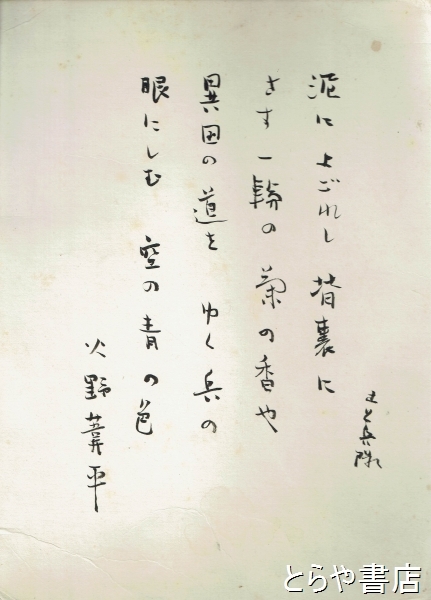 土と兵隊
泥によごれし 背裏に
さす一輪の 菊の香や
異国の道を ゆく兵の
眼にしむ 空の青の色
火野葦平
とらや書店